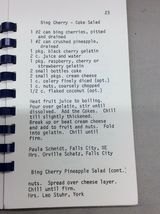 23
Bing Cherry - Coke Salad
1 #2 can bing cherries, pitted
and drained
1 #2 can crushed pineapple,
drained
1 pkg. black cherry gelatin
2 c. juice and water
1 pkg. raspberry, cherry or
strawberry gelatin
2 small bottles coke
2 small pkgs. cream cheese
1 c. celery, finely diced (opt.)
1 c. nuts, coarsely chopped
1/2 c. flaked coconut (opt.)
Heat fruit juice to boiling.
Pour over gelatin, stir until
dissolved. Add the Cokes. Chill
till slightly thickened.
Break up or beat cream cheese
and add to fruit and nuts. Fold
into gelatin. Chill until
firm.
Paula Schmidt, Falls City, NE
Mrs. Orville Schatz, Falls City
Bing Cherry Pineapple Salad (cont.)
nuts. Spread over cheese layer.
Chill until firm.
Mrs. Leo Stuhr, York